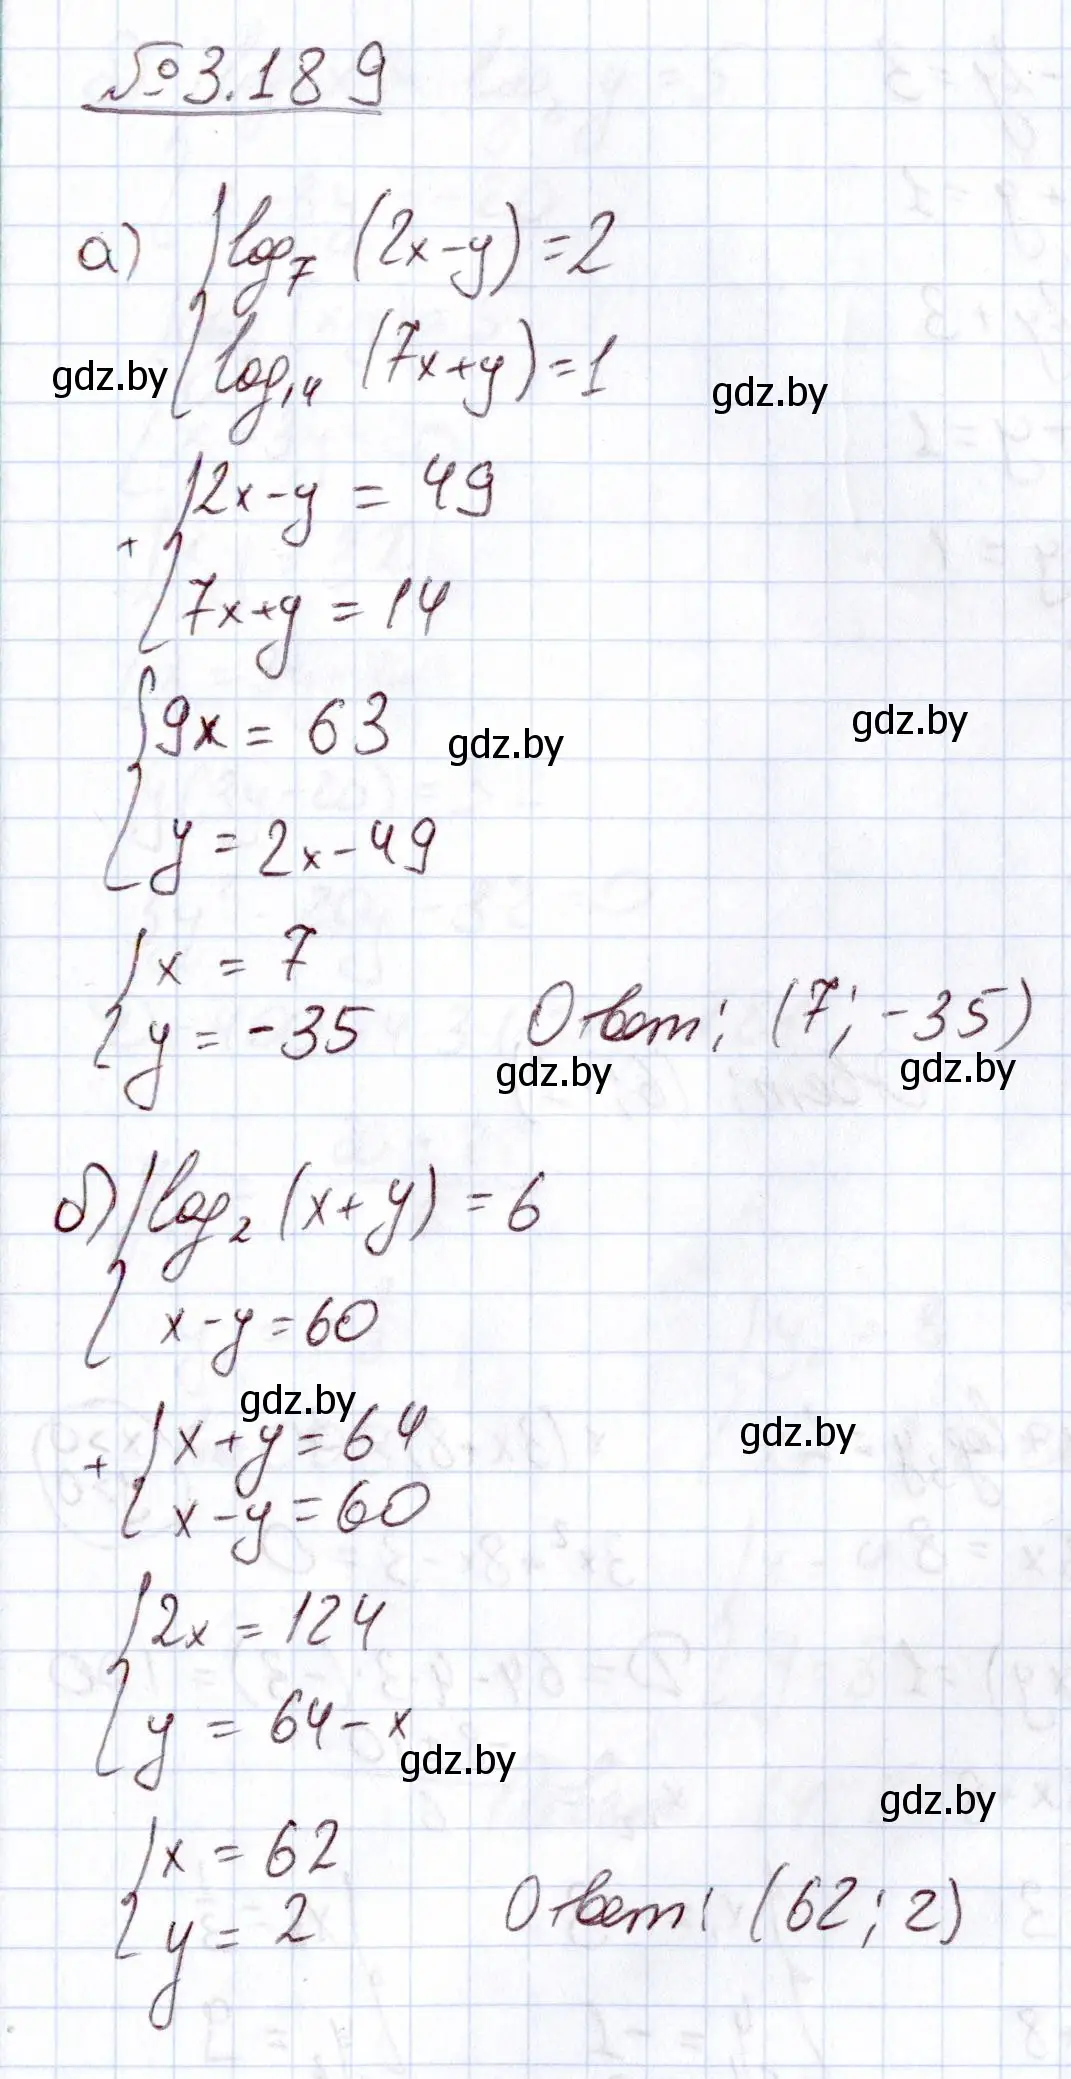 №3.189
а) { log₇ (2x-y) = 2
gdz.by { log₁₄ (7x+y) = 1 gdz.by
+ { 2x-y = 49
{ 7x+y = 14
{ 9x = 63 gdz.by gdz.by
{ y = 2x-49
{ x = 7
{ y = -35 Ответ: (7; -35)
gdz.by gdz.by
б) { log₂ (x+y) = 6
{ x-y = 60
gdz.by
+ { x+y = 64 gdz.by
{ x-y = 60
{ 2x = 124
{ y = 64-x
gdz.by gdz.by
{ x = 62
{ y = 2 Ответ: (62; 2)